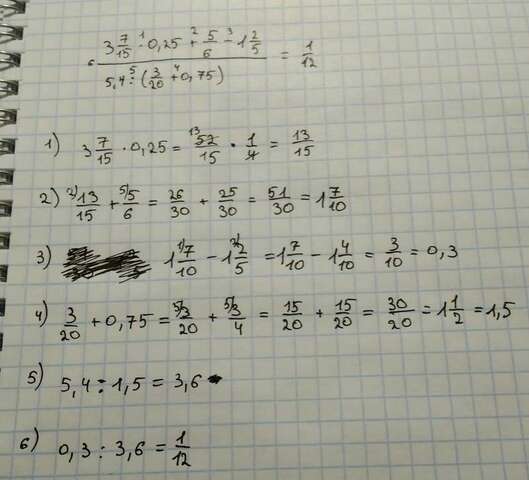 3 7/15 · 0,25 + 5/6 - 1 2/5 = 1/12
5,4 ÷ (3/20 + 0,75)
1) 3 7/15 · 0,25 = 52/15 · 1/4 = 13/15
2) 13/15 + 5/6 = 26/30 + 25/30 = 51/30 = 1 7/10
3) 1 7/10 - 1 2/5 = 1 7/10 - 1 4/10 = 3/10 = 0,3
4) 3/20 + 0,75 = 3/20 + 3/4 = 15/20 + 15/20 = 30/20 = 1 1/2 = 1,5
5) 5,4 ÷ 1,5 = 3,6
6) 0,3 : 3,6 = 1/12